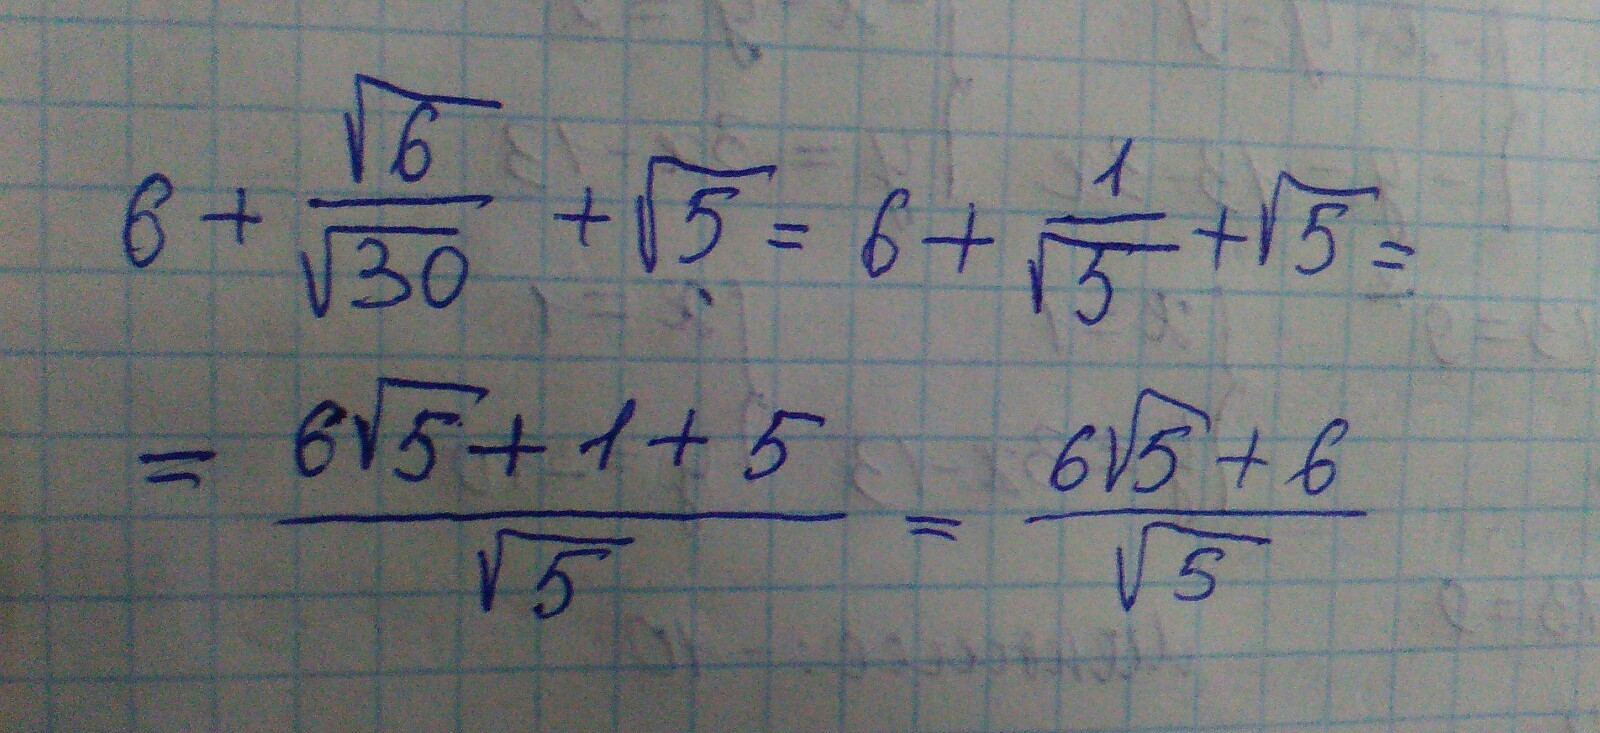 6 + √6/√30 + √5 = 6 + 1/√5 + √5 =
= (6√5 + 1 + 5)/√5 = (6√5 + 6)/√5